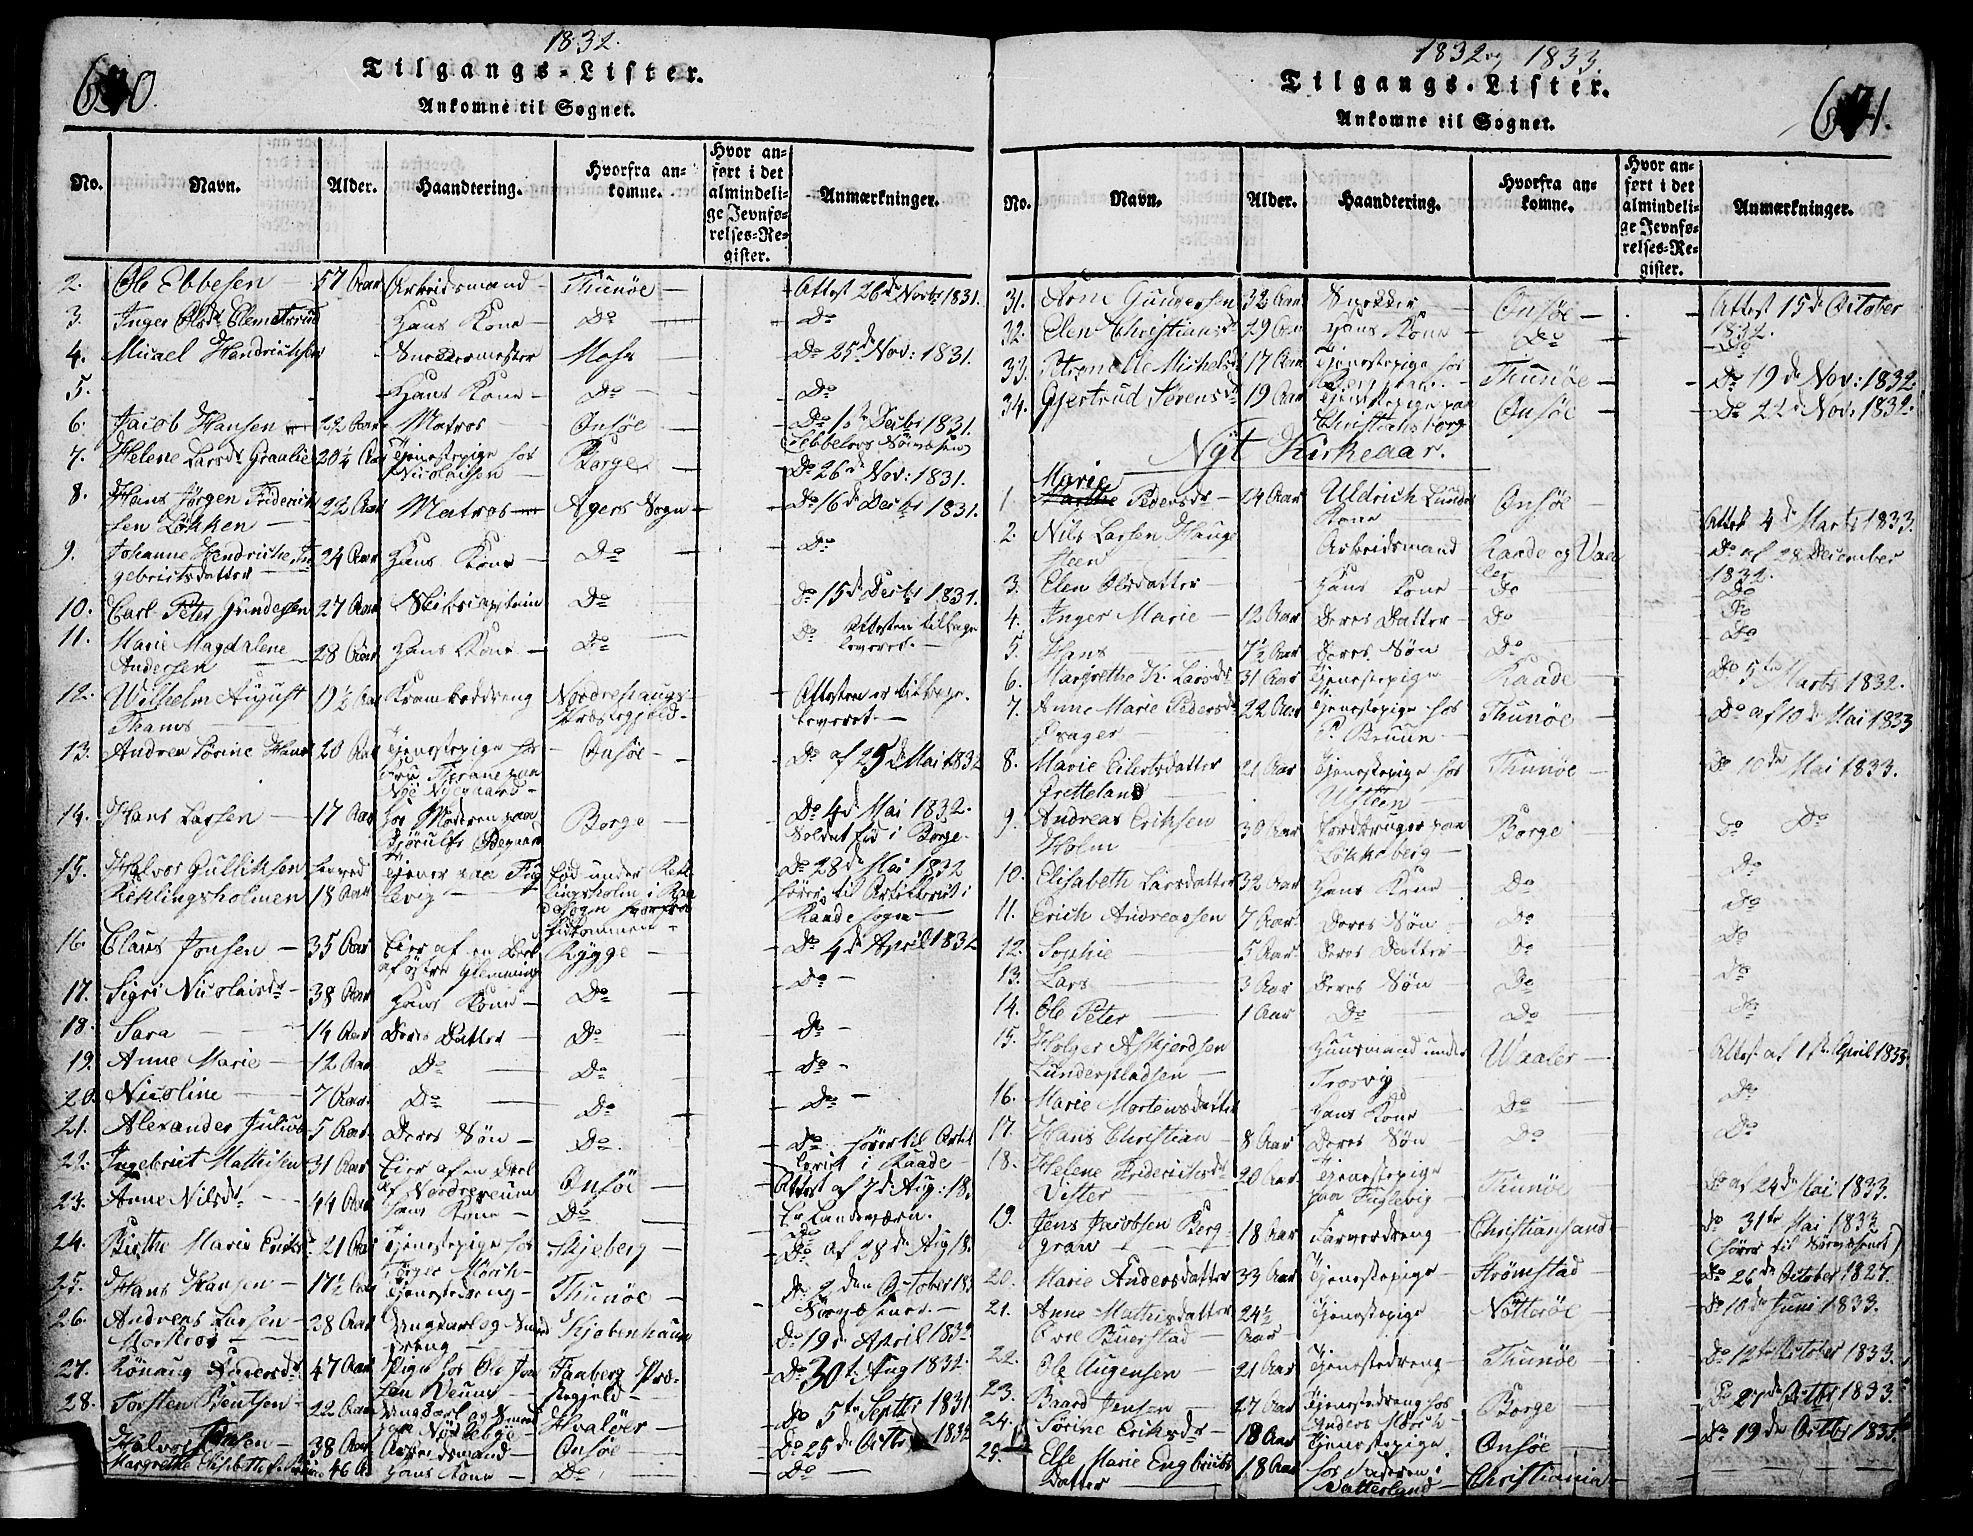 1832.
Tilgangs-Lister.
Ankomne til Sognet.
No. Navn. Alder. Haandtering. Hvorfra ankomne. Hvor anført i det almindelige Jevnførelses-Register. Anmærkninger.
2. Ole Ebbesen 57 Aar Arbeidsmand Thunøe Attest 26de Novbr 1831.
3. Inger Olsdr Clemetsrud Hans Kone Do Do
4. Micael Hendrichsen Snedkermester Moss Do 25de Nov: 1831.
5. Hans Kone Do Do
6. Jacob Hansen 22 Aar Matros Onsøe Do 1ste Decbr 1831.
7. Helene Larsdr Graalie 20½ Aar Tjenestepige hos Nicolaisen Borge Do 26de Nov: 1831.
8. Hans Jørgen Friderichsen Løkken 22 Aar Matros Agers Sogn Do 16de Decbr 1831.
9. Johanne Hendriche Ingebrigtsdatter 24 Aar Hans Kone Do Do
10. Carl Peter Gundersen 27 Aar Skibscaptein Do Do 15de Decbr 1831.
11. Marie Magdalene Andersen 28 Aar Hans Kone Do Do Attesten tilbageleveret.
12. Wilhelm August Thams 19½ Aar Kramboddreng Nordrehaugs Præstegjeld Attesten er tilbageleveret.
13. Andrea Sørine Hans 20 Aar Tjenestepige hos Onsøe Do af 25de Mai 1832
14. Hans Larsen 17 Aar hos Moderen paa Borge Do 4de Mai 1832.
15. Halvor Gulliksen Kehlingsholmen 18 Aar Tjener paa Do 28de Mai 1832
Raade sogn
16. Claus Jonsen 35 Aar Eier af en Deel af østre Glemminge Rygge Do 4de April 1832
17. Sigri Nicolaisdr 38 Aar Hans Kone Do Do
18. Sara 14 Aar Deres Datter Do Do
19. Anne Marie 12 Aar Do Do Do
20. Nicoline 7 Aar Do Do Do
21. Alexander Julius 5 Aar Deres Søn Do Do
22. Ingebret Mathisen 31 Aar Eier af en Deel af Nordre Veum Onsøe Attest af 7de Aug: 18
23. Anne Nilsdr 44 Aar Hans Kone Do
24. Birthe Marie Eriksdr 21 Aar Tjenestepige hos Skjeberg Do af 28de Aug 18
25. Hans Hansen 17½ Aar Tjenestedreng Thunøe Do 2den October 18
26. Andreas Larsen 28 Aar Kjøbenhavn Do 19de April 1832
27. Rønaug Andersdr 47 Aar Pige hos Ole Faaberg Præstegjeld Do 30te Aug 1832.
28. Torsten Bentsen 22 Aar Hvaløer Do 5te Septbr 1831
Halvor Jensen 38 Aar Arbeidsmand Onsøe Do 25de Octbr 1832
Margrethe 46 A. Hans Kone Do Do
1832 og 1833.
671.
Tilgangs-Lister.
Ankomne til Sognet.
No. Navn. Alder. Haandtering. Hvorfra ankomne. Hvor anført i det almindelige Jevnførelses-Register. Anmærkninger.
31. Arne Gundersen 32 Aar Snedker Onsøe Attest 15de October 1832.
32. Elen Christiansdr 29 Aar Hans Kone Do Do
33. Petronelle Michelsdr 17 Aar Tjenestepige hos Thunøe Do 19de Nov: 1832.
34. Gjertrud Sørensdr 19 Aar Tjenestepige paa Christiansborg Onsøe Do 22de Nov: 1832.
Nyt Kirkeaar.
1 Marie Pedersdr 24 Aar Uldrich Lunds Kone Onsøe Attest 4de Marts 1833.
2. Nils Larsen Haugsteen Arbeidsmand Raade og Vaaler Do af 28 December 1832.
3. Elen Olsdatter Hans Kone Do Do
4. Inger Marie 12 Aar Deres Datter Do Do
5. Hans 7½ Aar Deres Søn Do Do
6. Margrethe K. Larsdr 31 Aar Tjenestepige Raade Do 5te Marts 1832.
7. Anne Marie Pedersdr 22 Aar Tjenestepige hos P. Bruun Thunøe Do af 10de Mai 1833
8. Marie Eilertsdatter Gretteland 21 Aar Tjenestepige hos Thunøe Do 10de Mai 1833.
9. Andreas Eriksen Holm 30 Aar Jordbruger paa Løkkeberg Borge Do Do
10. Elisabeth Larsdatter 32 Aar Hans Kone Do Do
11. Erich Andreassen 7 Aar Deres Søn Do Do
12. Sophie 5 Aar Deres Datter Do Do
13. Lars 3 Aar Deres Søn Do Do
14. Ole Peter 1 Aar Do Do Do
15. Holger Askjerdsen Lunderpladsen Huusmand under Trosvig Waaler Attest af 1ste April 1833
16. Marie Mortensdatter Hans Kone Do Do
17. Hans Christian 8 Aar Deres Søn Do Do
18. Helene Friderichsdr Ditter 20 Aar Tjenestepige paa Fuglevig Thunøe Do af 24de Mai 1833.
19. Jens Jacobsen Berggrav 18 Aar Farverdreng Christiansand Do 31te Mai 1833
20. Marie Andersdatter 33 Aar Tjenestepige Strømstad Do 26de October 1827.
21. Anne Mathisdatter 24½ Aar Tjenestepige Nøtterøe Do 10de Juni 1833.
22. Ole Augensen 21 Aar Tjenestedreng Thunøe Do 12te October 1833.
23. Baard Jensen 27 Aar Tjenestedreng hos Anders Mørch Borge Do 27de Octbr 1833
24. Sørine Eriksdr 18 Aar Tjenestepige Onsøe Do 19de Octbr 1833
25. Else Marie Engebrets Datter 18 Aar hos Faderen i Vatterland Christiania